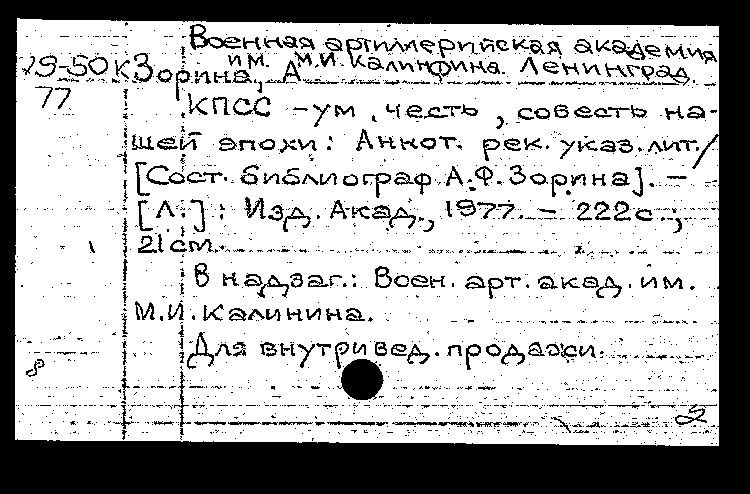 Военная артиллерийская академия
им. М.И. Калинина. Ленинград.
79-50к Зорина, А
77
КПСС - ум, честь, совесть на-
шей эпохи: Аннот. рек. указ. лит./
[Сост. библиограф А.Ф. Зорина]. -
[Л.]: Изд. Акад., 1977. - 222с.;
21 см.
В надзаг.: Воен. арт. акад. им.
М.И. Калинина.
Для внутривед. продажи.